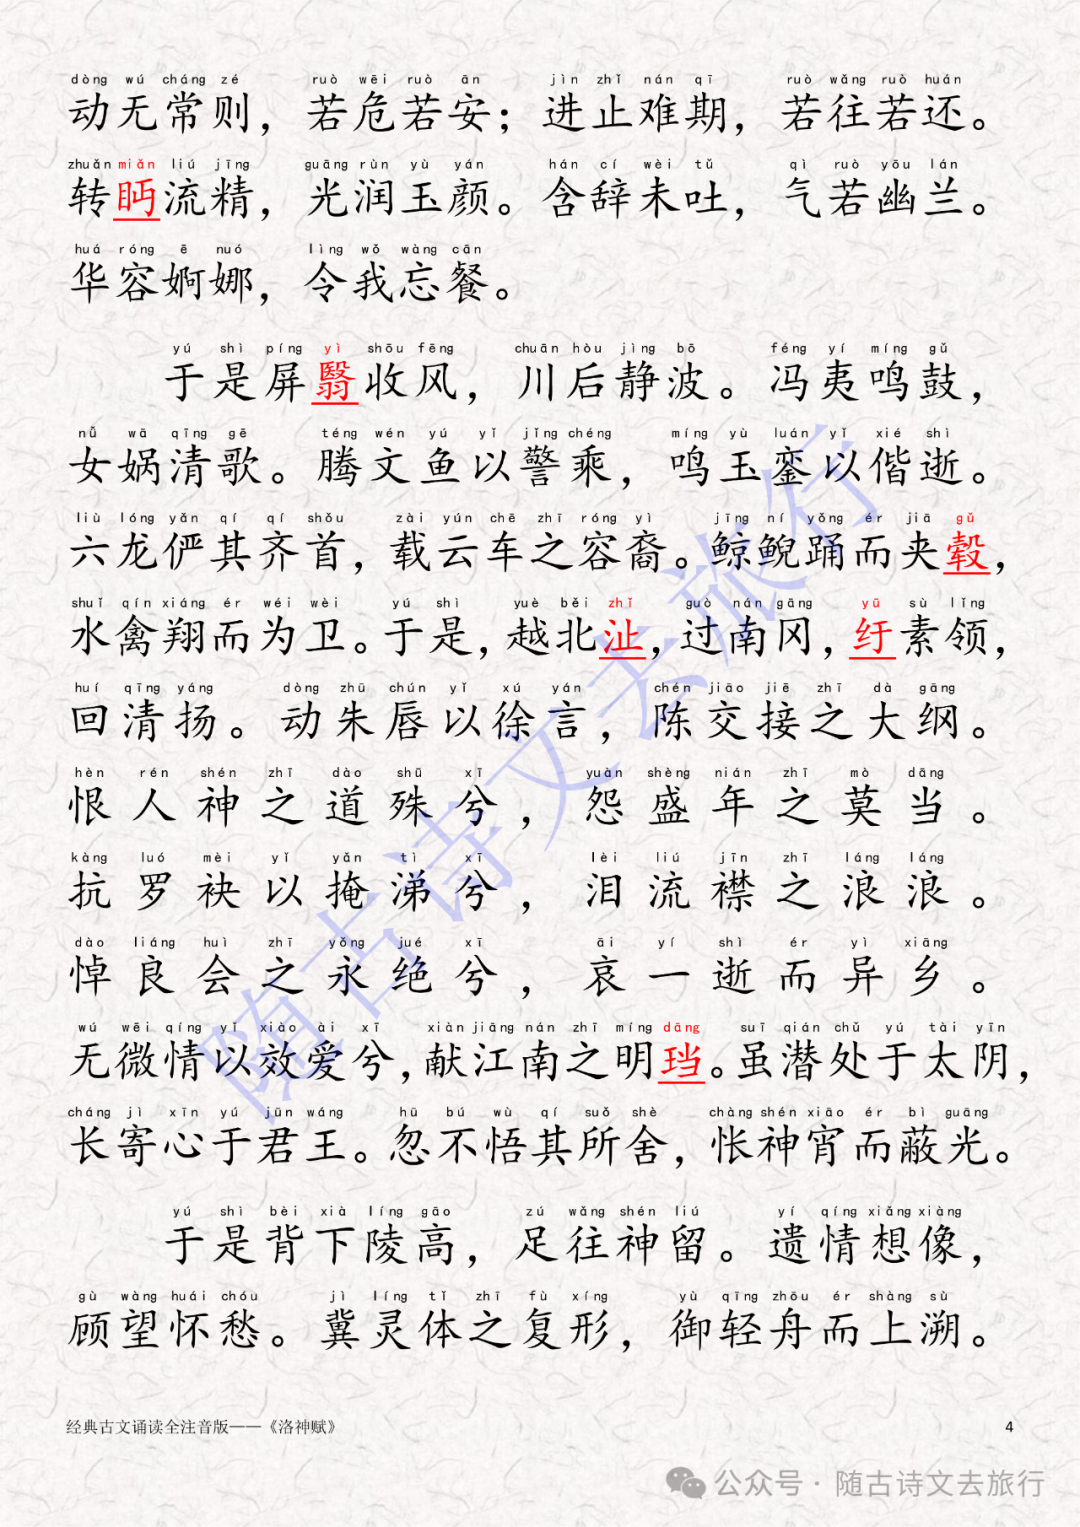 dòng wú cháng zé ruò wēi ruò ān jìn zhǐ nán qī ruò wǎng ruò huán
动无常则，若危若安；进止难期，若往若还。
zhuǎn miǎn liú jīng guāng rùn yù yán hán cí wèi tǔ qì ruò yōu lán
转眄流精，光润玉颜。含辞未吐，气若幽兰。
huá róng ē nuó lìng wǒ wàng cān
华容婀娜，令我忘餐。
yú shì píng yì shōu fēng chuān hòu jìng bō féng yí míng gǔ
于是屏翳收风，川后静波。冯夷鸣鼓，
nǚ wā qīng gē téng wén yú yǐ jǐng chéng míng yù luán yǐ xié shì
女娲清歌。腾文鱼以警乘，鸣玉銮以偕逝。
liù lóng yǎn qí qí shǒu zài yún chē zhī róng yì jīng ní yǒng ér jiā gǔ
六龙俨其齐首，载云车之容裔。鲸鲵踊而夹毂，
shuǐ qín xiáng ér wéi wèi yú shì yuè běi zhǐ guò nán gāng yū sù lǐng
水禽翔而为卫。于是，越北沚，过南冈，纡素领，
huí qīng yáng dòng zhū chún yǐ xú yán chén jiāo jiē zhī dà gāng
回清扬。动朱唇以徐言，陈交接之大纲。
hèn rén shén zhī dào shū xī yuàn shèng nián zhī mò dāng
恨人神之道殊兮，怨盛年之莫当。
kàng luó mèi yǐ yǎn tì xī lèi liú jīn zhī láng láng
抗罗袂以掩涕兮，泪流襟之浪浪。
dào liáng huì zhī yǒng jué xī āi yí shì ér yì xiāng
悼良会之永绝兮，哀一逝而异乡。
wú wēi qíng yǐ xiào ài xī xiàn jiāng nán zhī míng dāng suī qián chǔ yú tài yīn
无微情以效爱兮，献江南之明珰。虽潜处于太阴，
cháng jì xīn yú jūn wáng hū bú wù qí suǒ shè chàng shén xiāo ér bì guāng
长寄心于君王。忽不悟其所舍，怅神宵而蔽光。
yú shì bèi xià líng gāo zú wǎng shén liú yí qíng xiǎng xiàng
于是背下陵高，足往神留。遗情想像，
gù wàng huái chóu jì líng tǐ zhī fù xíng yù qīng zhōu ér shàng sù
顾望怀愁。冀灵体之复形，御轻舟而上溯。
随古诗文去旅行
经典古文诵读全注音版——《洛神赋》 4
公众号·随古诗文去旅行